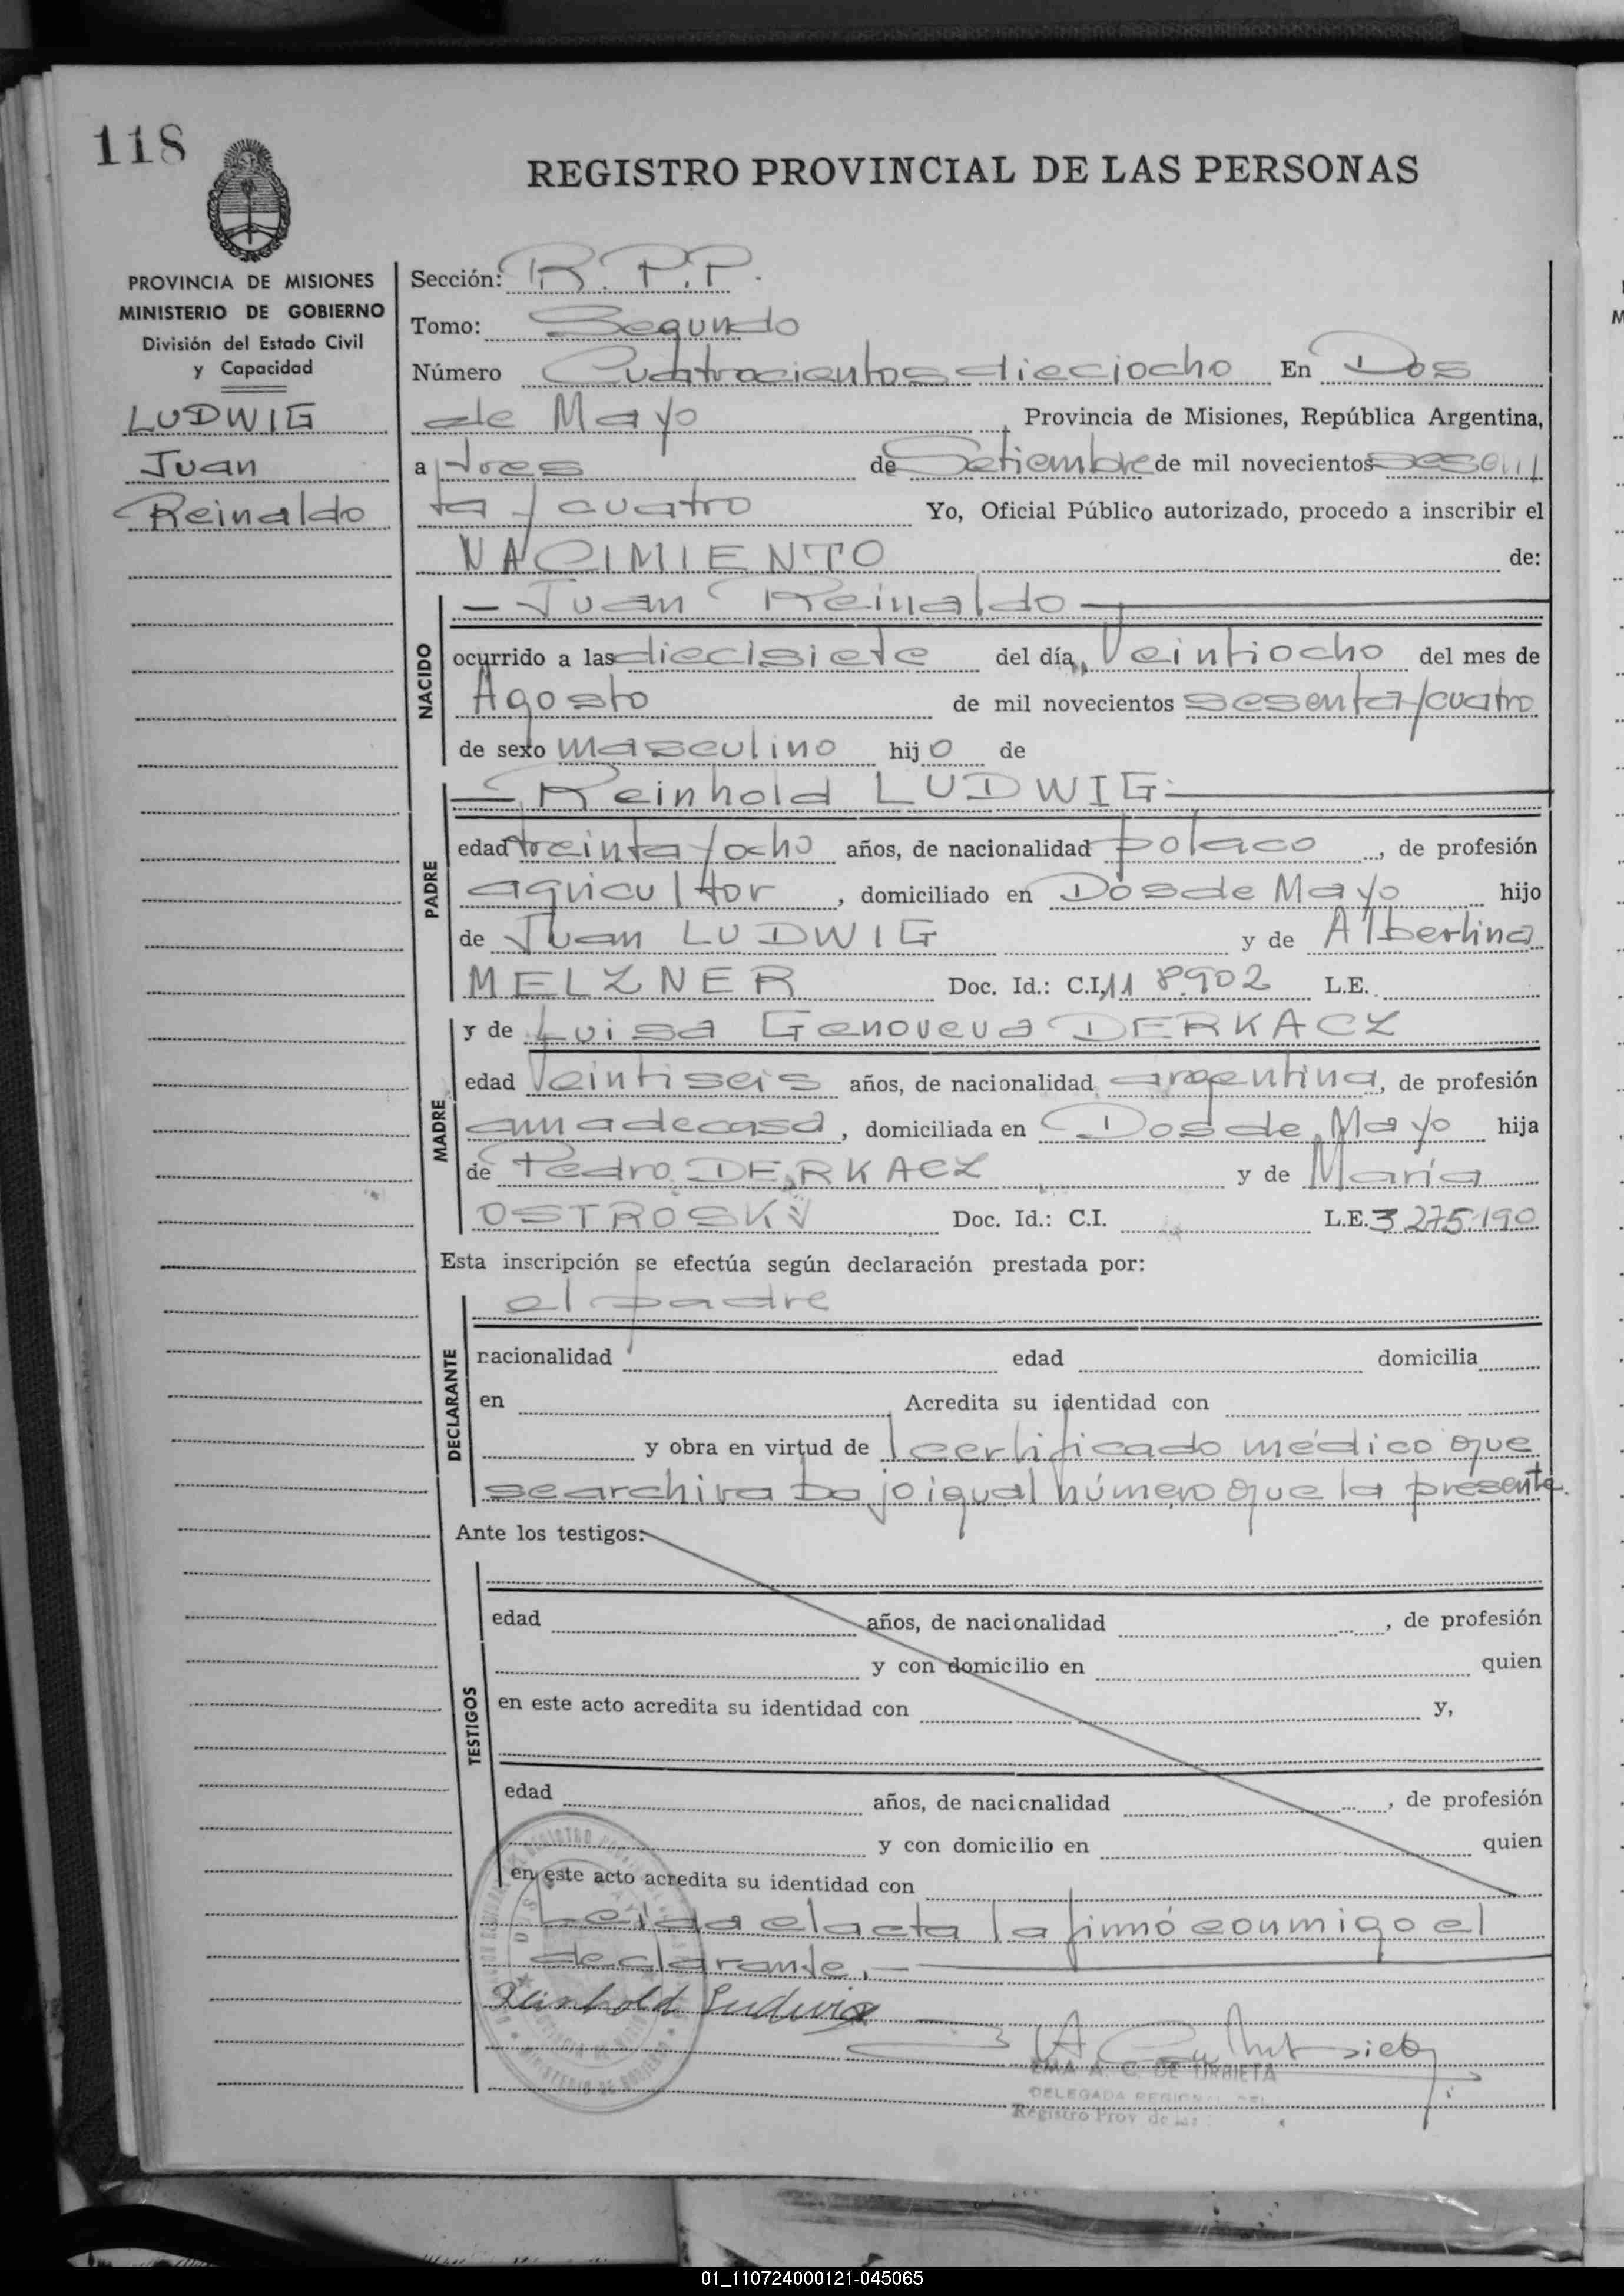 118
REGISTRO PROVINCIAL DE LAS PERSONAS
PROVINCIA DE MISIONES
MINISTERIO DE GOBIERNO
División del Estado Civil
y Capacidad
LUDWIG
Juan
Reinaldo
Sección: R.P.P.
Tomo: Segundo
Número Cuatrocientos dieciocho En Dos
de Mayo, Provincia de Misiones, República Argentina,
a tres de Setiembre de mil novecientos sesen
ta y cuatro Yo, Oficial Público autorizado, procedo a inscribir el
NACIMIENTO de:
NACIDO
— Juan Reinaldo —
ocurrido a las diecisiete del día Veintiocho del mes de
Agosto de mil novecientos sesenta y cuatro
de sexo masculino hijo de
PADRE
— Reinhold LUDWIG —
edad treinta y ocho años, de nacionalidad polaco, de profesión
agricultor, domiciliado en Dos de Mayo hijo
de Juan LUDWIG y de Albertina
MELZNER Doc. Id.: C.I. 118.902 L.E.
MADRE
y de Luisa Genoveva DERKACZ
edad Veintiseis años, de nacionalidad argentina, de profesión
ama de casa, domiciliada en Dos de Mayo hija
de Pedro DERKACZ y de María
OSTROSKY Doc. Id.: C.I. L.E. 3.275.190
Esta inscripción se efectúa según declaración prestada por:
DECLARANTE
el padre
nacionalidad edad domicilia
en Acredita su identidad con
y obra en virtud de 1 certificado médico que
se archiva bajo igual número que la presente.
Ante los testigos:
TESTIGOS
edad años, de nacionalidad, de profesión
y con domicilio en quien
en este acto acredita su identidad con y,
edad años, de nacionalidad, de profesión
y con domicilio en quien
en este acto acredita su identidad con
Leida el acta la firmó conmigo el
declarante. —
Reinhold Ludwig
EMA A. C. DE URBIETA
DELEGADA REGIONAL DEL
Registro Prov de las
01_110724000121-045065